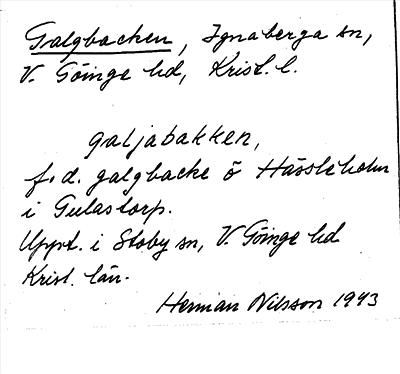 Galgbacken, Ignaberga sn,
V. Göinge hd, Krist. l.
galjabakken,
f.d. galgbacke ö Hässleholm
i Gulastorp.
Uppt. i Stoby sn, V. Göinge hd
Krist. län.
Herman Nilsson 1943